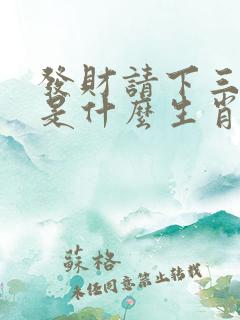 發財請下三
是什麼生肖
蘇格
未經同意禁止轉載